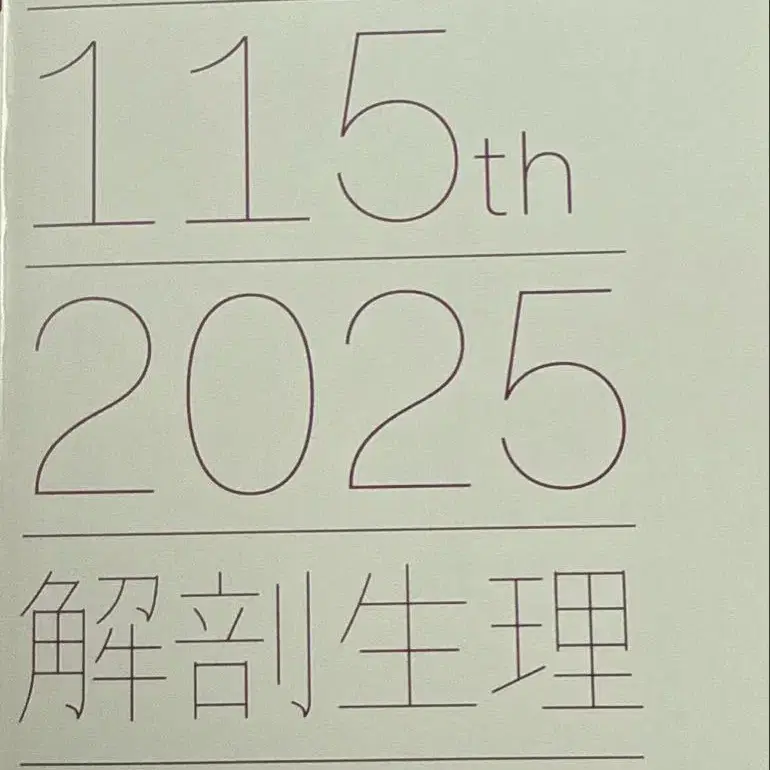 115th
2025
解剖生理